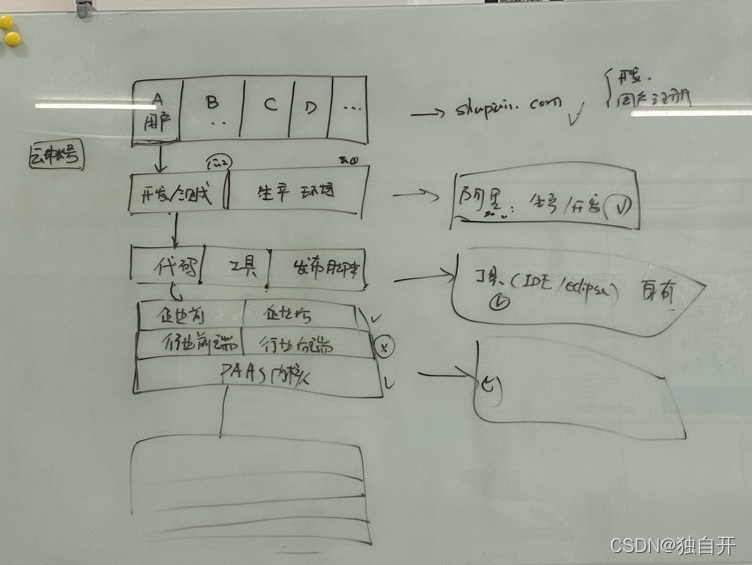 A B C D ...
用户 ..
→ shupin.com ✓
开发.
用户注册
云账号
开发/测试 生产 环境
阿里: 生产/开发 ✓
代码 工具 发布脚本
工具 (IDE/eclipse) 自有
企业前 企业后
行业前端 行业后端
PAAS内核
CSDN@独自开